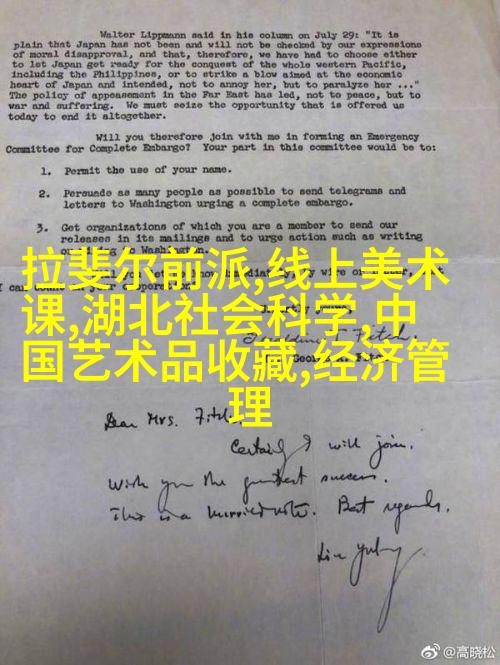 Walter Lippmann said in his column on July 29: "It is
plain that Japan has not been and will not be checked by our expressions
of moral disapproval, and that, therefore, we have had to choose either
to let Japan get ready for the conquest of the whole western Pacific,
including the Philippines, or to strike a blow aimed at the economic
heart of Japan and intended, not to annoy her, but to paralyze her ..."
The policy of appeasement in the Far East has led, not to peace, but to
war and suffering. We must seize the opportunity that is offered us
today to end it altogether.
Will you therefore join with me in forming an Emergency
Committee for Complete Embargo? Your part in this committee would be to:
1. Permit the use of your name.
2. Persuade as many people as possible to send telegrams and
letters to Washington urging a complete embargo.
3. Get organizations of which you are a member to send our
releases in its mailings and to urge action such as writing
Washington.
拉斐尔前派,线上美术
课,湖北社会科学,中
国艺术品收藏,经济管
理
Dear Mrs. Fitch
Certainly I will join.
Wish you the greatest success.
This is a hurried note. Best regards.
Lin Yutang
@高晓松